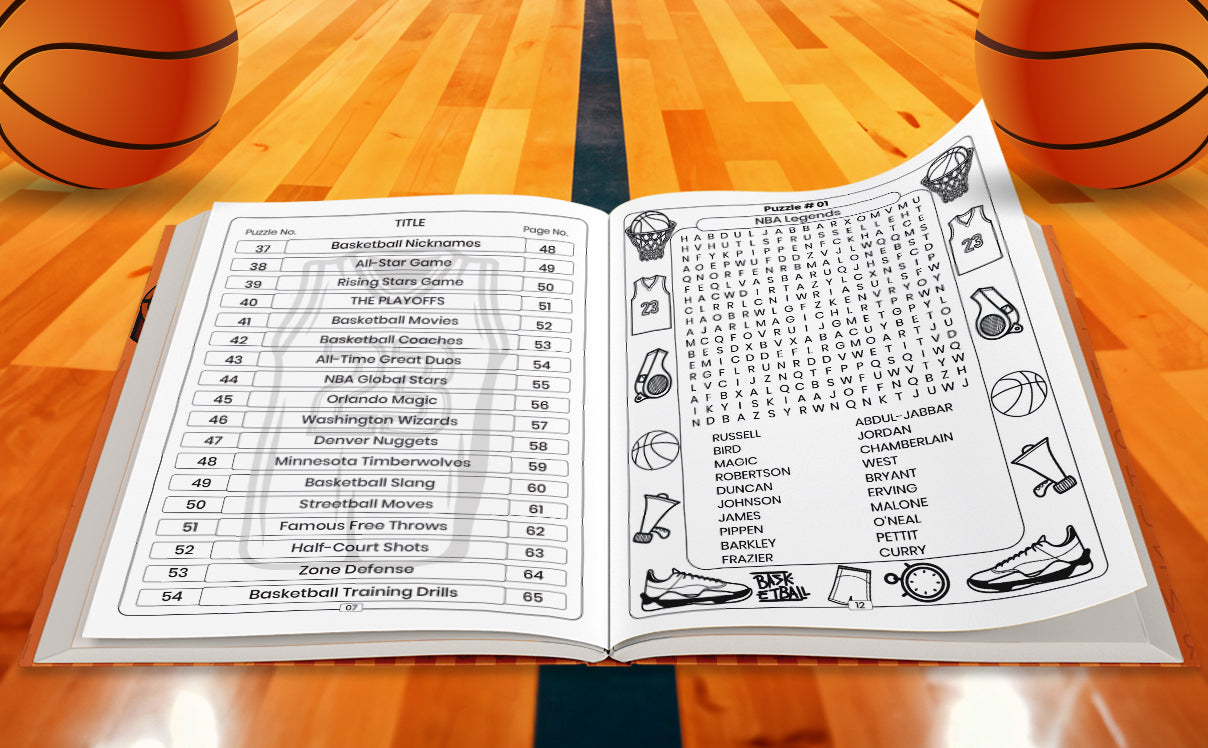 TITLE
Puzzle No. Page No.
37 Basketball Nicknames 48
38 All-Star Game 49
39 Rising Stars Game 50
40 THE PLAYOFFS 51
41 Basketball Movies 52
42 Basketball Coaches 53
43 All-Time Great Duos 54
44 NBA Global Stars 55
45 Orlando Magic 56
46 Washington Wizards 57
47 Denver Nuggets 58
48 Minnesota Timberwolves 59
49 Basketball Slang 60
50 Streetball Moves 61
51 Famous Free Throws 62
52 Half-Court Shots 63
53 Zone Defense 64
54 Basketball Training Drills 65
07
Puzzle # 01
NBA Legends
H A B D U L J A B B A R X O M V M U
H V H U T L S F R U S S E L L E H T
N F Y K P I P P E N F C K H A T C E
Q N O R F E N R B M A L O N E B S T
H A C W D I R T A Z Y L C X N S I P
C L R R L C N I W R I A S U L S F W
A J A R L M A G I C H L R T P R W N
B E S D X B V X A B A C U Y B E T O
R G F L R U N R D D V W E T I T V D
L V C I J Z N Q T F P P Q S Q I W Q
A F B X A L Q C B S W F U W V Z Y W
I K Y I S K I A A J O F F N Q B Z H
N D B A Z S Y R W N Q N K T J U W J
23
23
RUSSELL
BIRD
MAGIC
ROBERTSON
DUNCAN
JOHNSON
JAMES
PIPPEN
BARKLEY
FRAZIER
ABDUL-JABBAR
JORDAN
CHAMBERLAIN
WEST
BRYANT
ERVING
MALONE
O'NEAL
PETTIT
CURRY
BASK
ETBALL
12